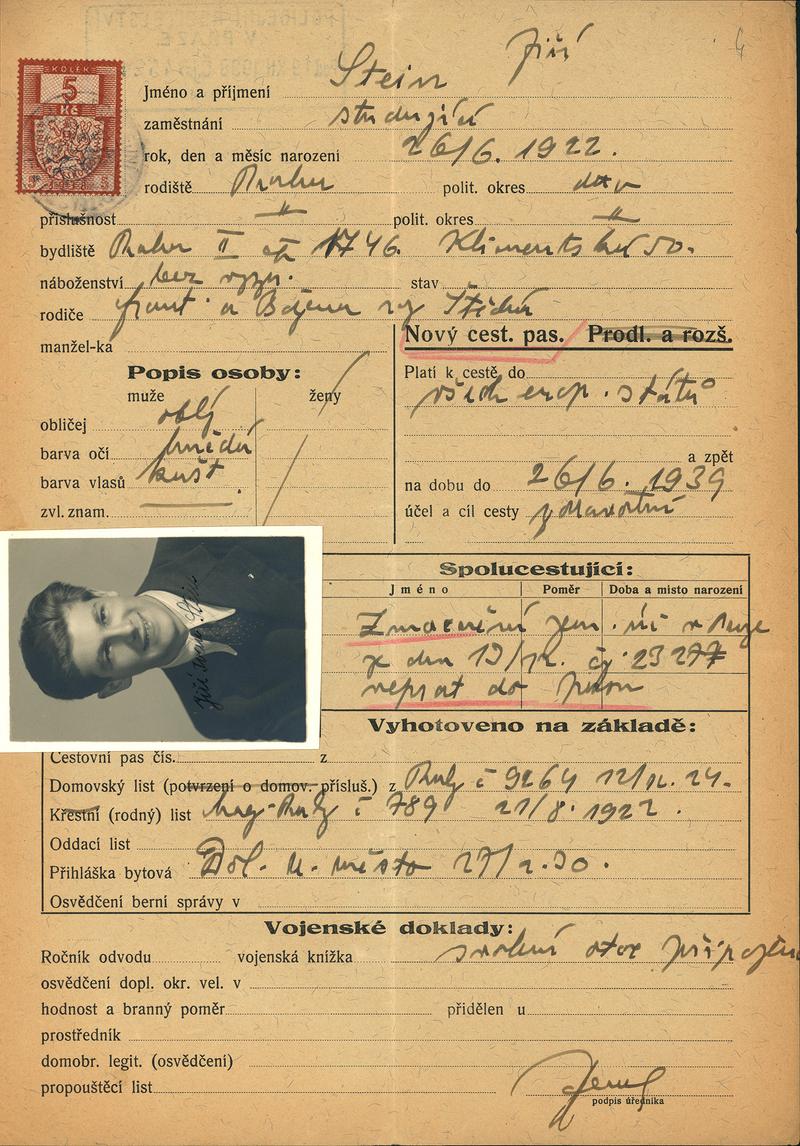 KOLEK
5
Kč
Jméno a příjmení Stein Jiří
zaměstnání studující
rok, den a měsíc narození 26/6. 1922.
rodiště Praha polit. okres
příslušnost " polit. okres "
bydliště Praha II 1746. Klimentská 50.
náboženství bez vyzn. stav
rodiče Frant. a Božena
manžel-ka
Nový cest. pas. Prodl. a rozš.
Popis osoby:
muže ženy
obličej oblý
barva očí hnědá
barva vlasů kašt
zvl. znam.
Platí k cestě do
všech evrop. států
a zpět
na dobu do 26/6. 1939
účel a cíl cesty zdravotní
Jiří Stein
Spolucestující:
Jméno Poměr Doba a místo narození
Zmocnění zem. úř. v Praze
ze dne 19/ čj. 23277
Vyhotoveno na základě:
Cestovní pas čís. z
Domovský list (potvrzení o domov. přísluš.) z Prahy č 9264 12/ 24.
Křestní (rodný) list Prahy č 789 21/8. 1922.
Oddací list
Přihláška bytová město 30.
Osvědčení berní správy v
Vojenské doklady:
Ročník odvodu vojenská knížka svolení otce připojeno
osvědčení dopl. okr. vel. v
hodnost a branný poměr přidělen u
prostředník
domobr. legit. (osvědčení)
propouštěcí list
podpis úředníka